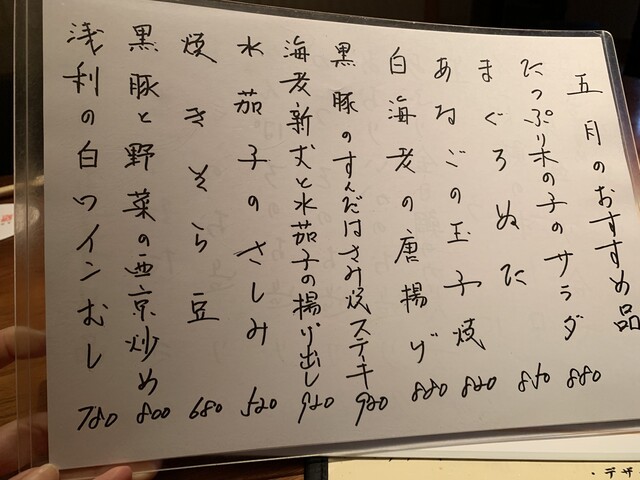 五月のおすすめ品
たっぷり木の子のサラダ 880
まぐろぬた 850
あなごの玉子焼 820
白海老の唐揚げ 880
黒豚のずんだはさみ焼ステーキ 920
海老新丈と水茄子の揚げ出し 920
水茄子のさしみ 520
焼きそら豆 680
黒豚と野菜の西京炒め 800
浅利の白ワインむし 780
・デザ